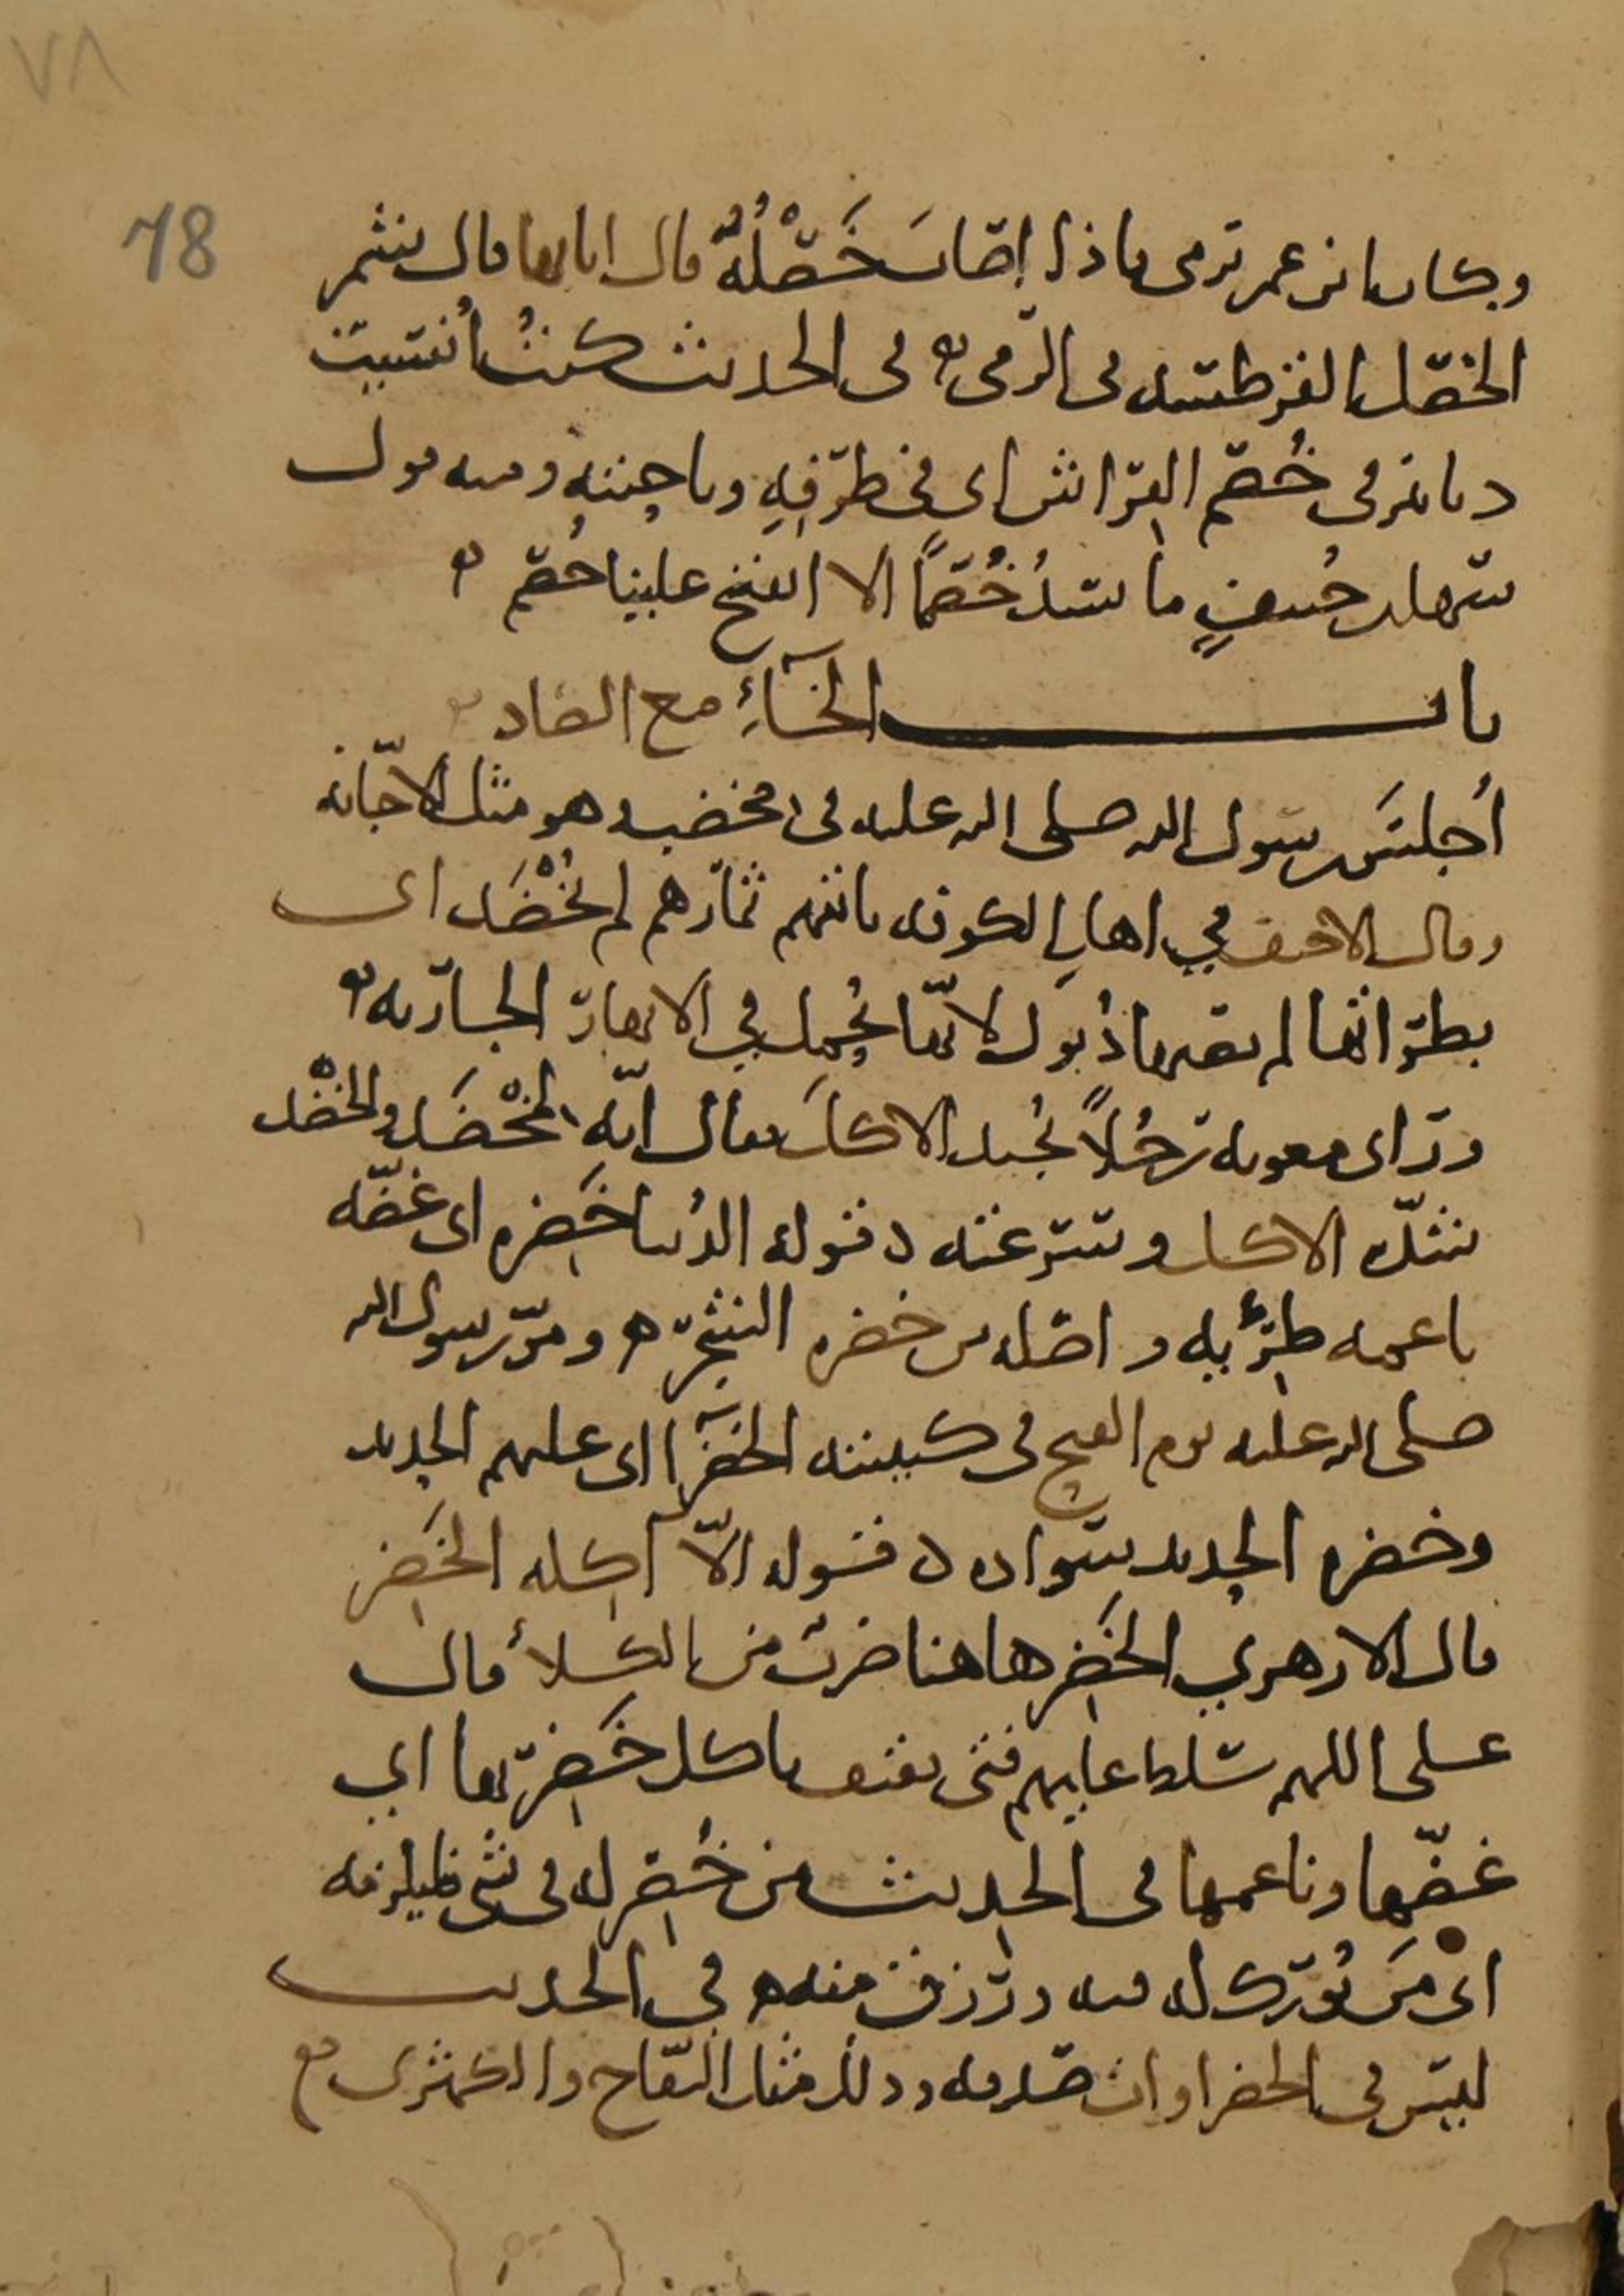 ٧٨
78
وكان ابن عمر يرمى فاذا اصاب خَصْلَةً قال انا بها قال شمر
الخصل القرطسه فى الرمى ه فى الحديث كنتُ أنسيت
دنانير فى خُصْم الفراش اى فى طرفِهِ وناحيته ومنه قول
سهل بن حُنيف ما نسدُّ خُصْمًا الا انفتح علينا خُصْم ه
باب الخآءِ مع الضاد
أجلس رسول الله صلى الله عليه فى مخضب وهو مثل الاجّانه
وقال الاحنف في اهل الكوفه تاتيهم ثمارهم لم تُخْضَد اى
بطراتها لم يصبها ذُبول لانّها تُحمل في الانهار الجاريه ه
ورأى معويه رجُلاً يُجيد الاكلَ فقال انّه لمخْضَد والخضْد
شدّه الاكل وسرعته ه قوله الدُنيا خَضِره اى غضّه
ناعمه طريّه واصله من خضره الشجره ه ومرّ رسول الله
صلى الله عليه يوم الفتح فى كتيبته الخضرآ اى عليهم الحديد
وخضره الحديد سواده ه قوله الاّ آكله الخَضِر
قال الازهري الخَضِر هاهنا ضرب من الكلأ قال
على اللهم سلط عليهم فتى ثقيف ياكل خَضِرتها اي
غضّها وناعمها فى الحديث من خُضِر له فى شى فليلزمه
اى مَن بُورك له فيه ورُزق منه ه فى الحديث
ليس فى الخضراوات صدقه وذلك مثل التفاح والكمثرى مع